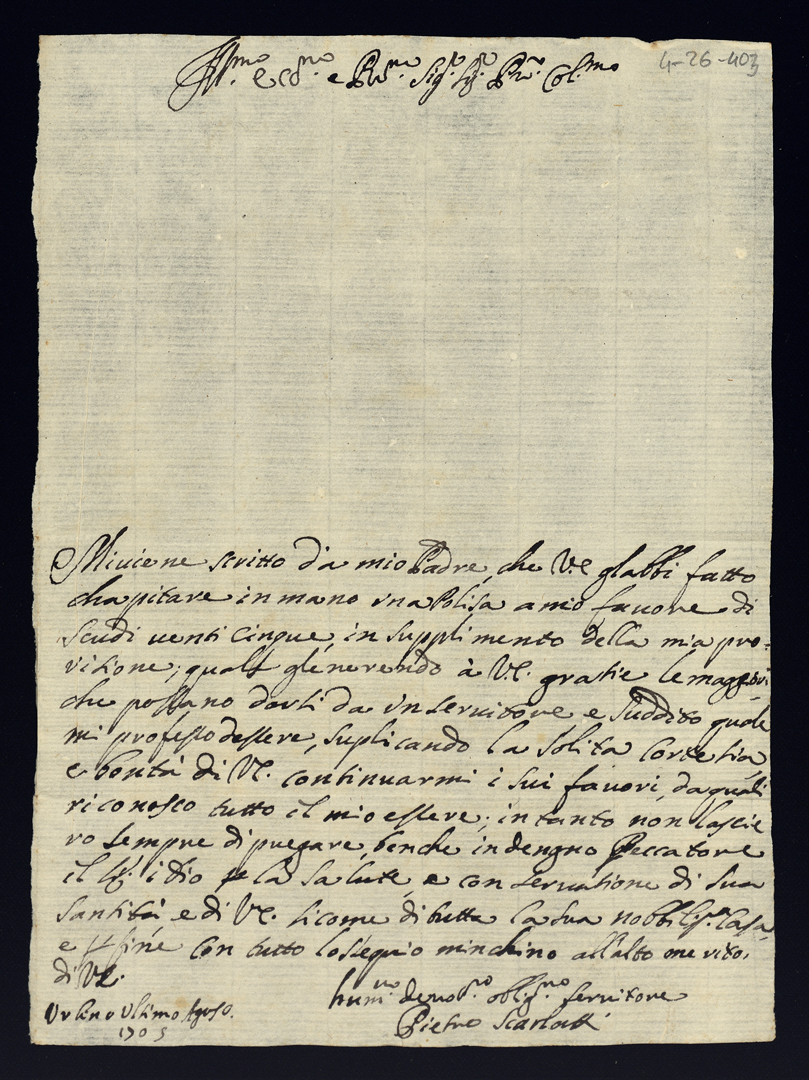 Ill.mo e ecc.mo e Pron.mo Sig.r Sig.r Pro.n Col.mo
4-26-403
Miviene scritto da mio Padre, che V.E gl'abbi fatto
chapitare in mano una Polisa a mio favore di
scudi venti cinque, in supplimento della mia pro=
visione; quali gle ne rendo à V.E. gratie le maggiori
che possano darsi da un servitore e suddito quale
mi professo d'essere, suplicando la solita cortesia
e bontà di VE. continuarmi i sui favori, da quali
riconosco tutto il mio essere; in tanto non lascie
ro sempre di pregare, benche indengno Peccatore
il Sig.r idio p la salute, e conservatione di sua
santità e di VE. sicome di tutta la sua nobbilis.ma Casa,
e p fine con tutto l'osequio m'inchino all'alto merito,
di VE.
hum.mo devo.mo oblig.mo servitore
Pietro Scarlatti
Urbino Ultimo Agosto.
1705